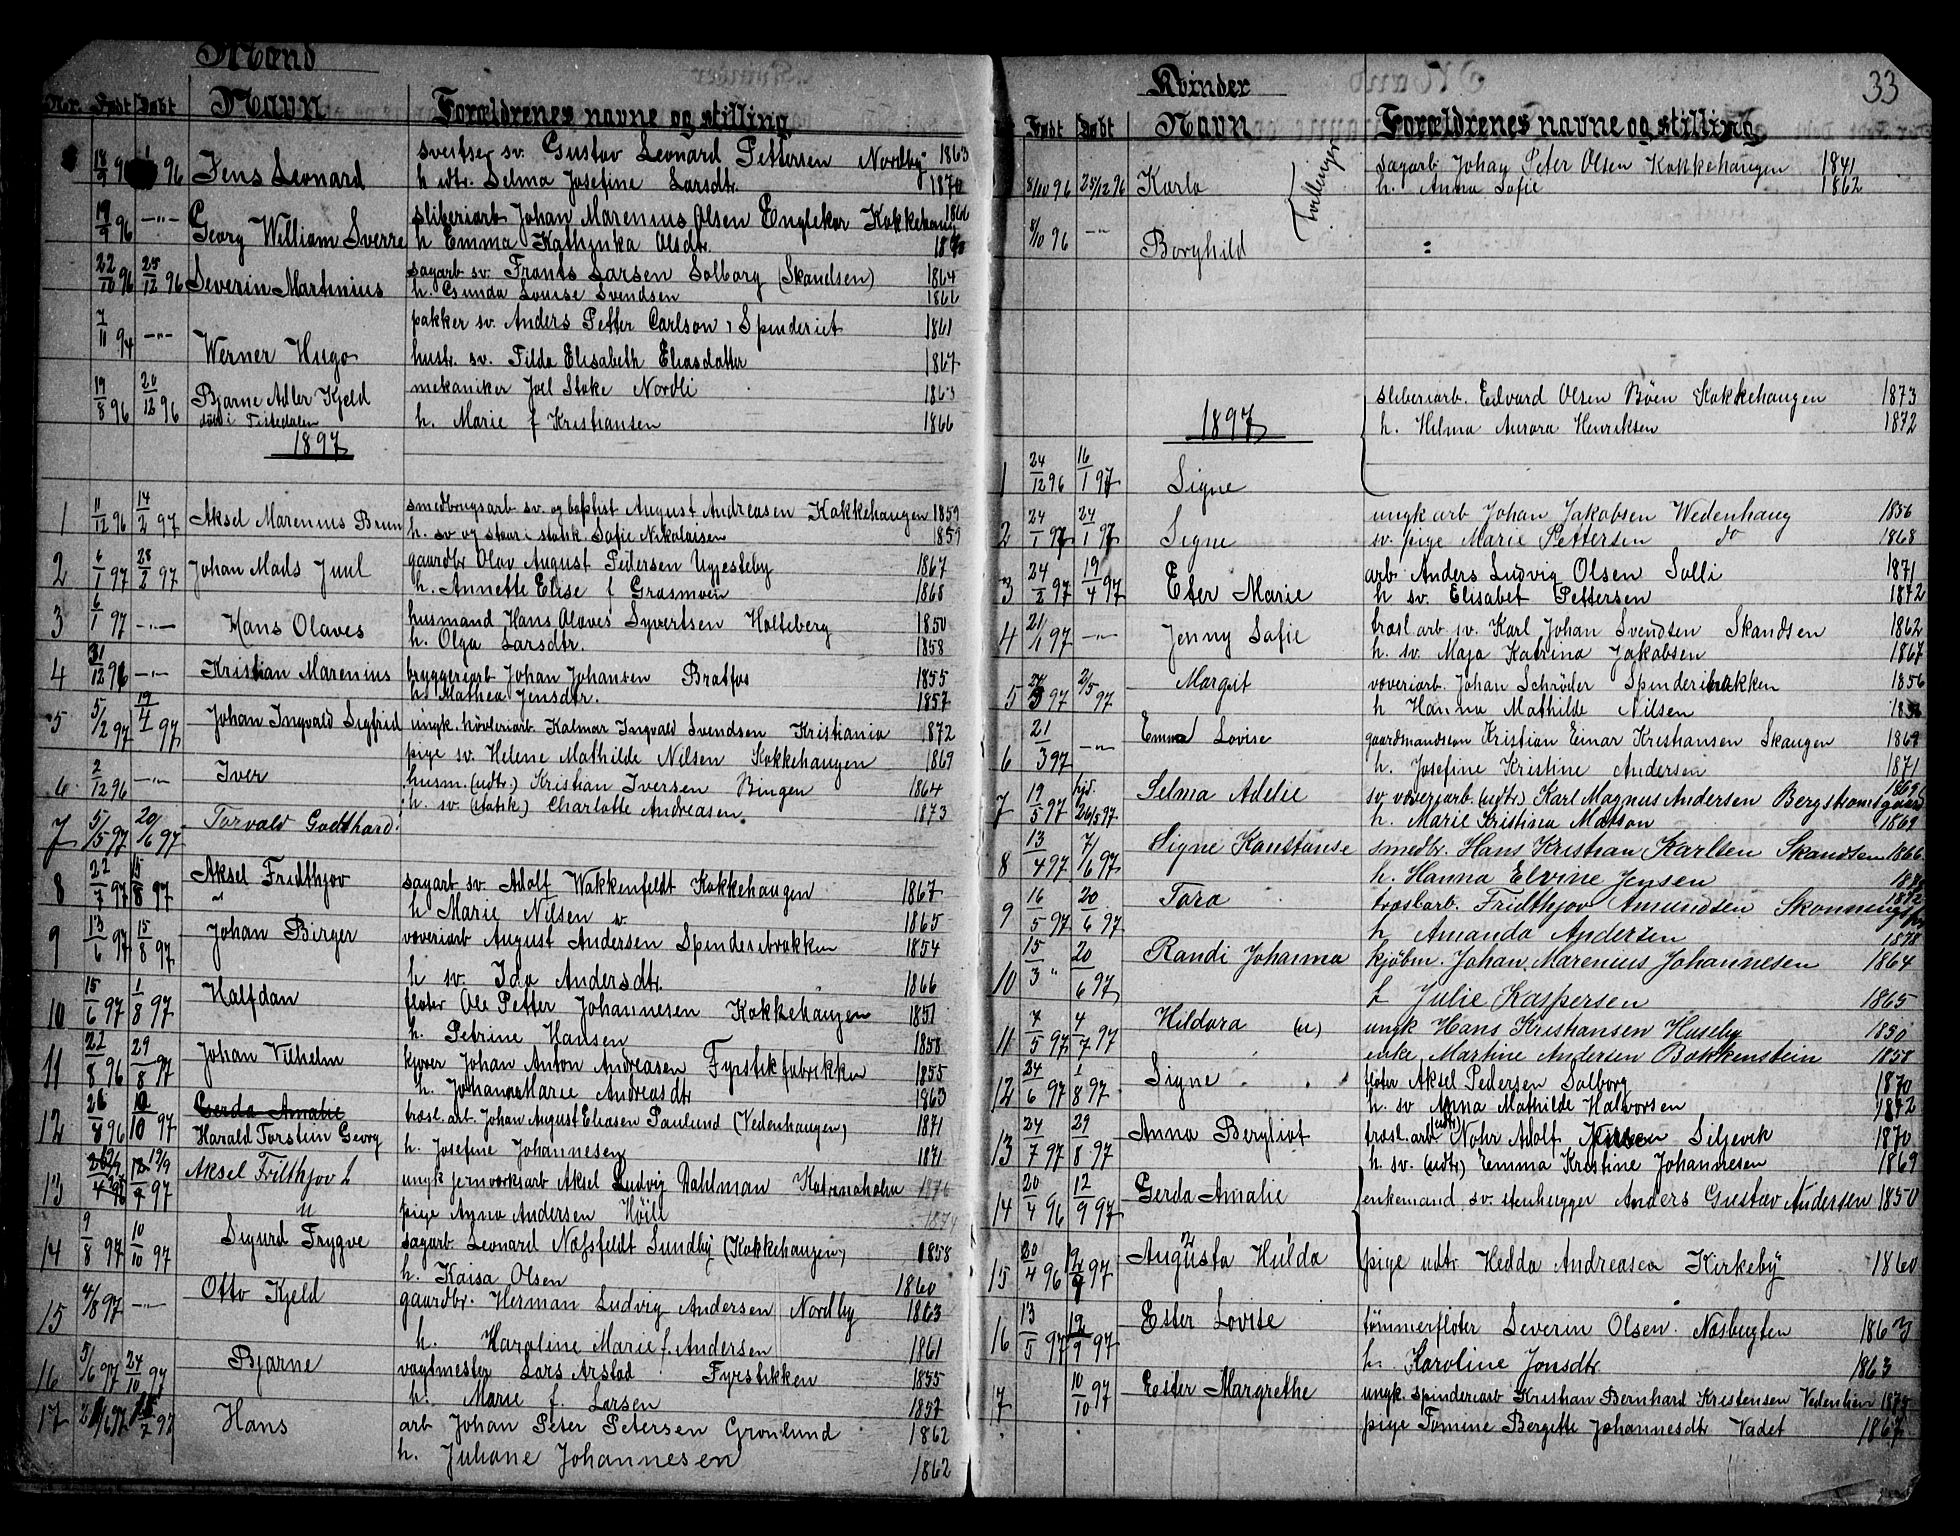 Mænd
Nr. Født Døbt Navn Forældrenes navne og stilling
18/9 96 96 Jens Leonard sv. Gustav Leonard Pettersen Nordby 1863
h. udtr. Selma Josefine Larsdtr. 1870
19/9 96 —"— Georg William Sverre sliberiarb Johan Marenius Olsen Englekor Kokkehaug
h Emma Kathinka Olsdtr.
22/10 96 25/12 96 Severin Martinius sagarb sv. Frants Larsen Solborg (Skandsen) 1864
h. Gunda Louise Svendsen 1866
7/11 94 —"— Werner Hugo pakker sv. Anders Petter Carlson, Spinderiet 1861
hustr. sv. Tilda Elisabeth Eliasdatter 1867
19/8 96 20/12 96 Bjarne Adler Kjeld mekaniker Joel Stoke Nordli 1863
døbt i Tistedalen h. Marie f Kristiansen 1866
1897
1 11/12 96 14/2 97 Aksel Marenius Brun smedbrugsarb sv. og baptist August Andreasen Kokkehaugen 1859
h. sv og staar i statsk. Sofie Nikolaisen 1859
2 6/1 97 28/2 97 Johan Mads Juul gaardbr Olav August Pedersen Ugjesteby 1867
h. Annette Elise f Grasmoen 1868
3 6/1 97 —"— Hans Olaves husmand Hans Olaves Syvertsen Holteberg 1850
h. Olga Larsdtr. 1858
4 31/12 96 —"— Kristian Marenius bryggeriarb Johan Johansen Bratfos 1855
h. Mathea Jensdtr. 1857
5 5/2 97 19/4 97 Johan Ingvald Sigfrid ungk. høvleriarb. Kalmar Ingvald Svendsen Kristiania 1872
pige sv. Helene Mathilde Nilsen Kokkehaugen 1869
6 2/12 96 —"— Iver husm. (udtr.) Kristian Iversen Bingen 1864
h. sv. (statsk) Charlotte Andreasen 1873
7 5/5 97 20/6 97 Torvald Godthard
8 22/7 97 15/8 97 Aksel Fridthjov sagarb sv. Adolf Wakkenfeldt Kokkehaugen 1867
" h Marie Nilsen sv. 1865
9 13/6 97 15/8 97 Johan Birger væveriarb August Andersen Spinderibrakken 1854
h sv. Ida Andersdtr. 1866
10 15/6 97 1/8 97 Halfdan fløter Ole Petter Johannesen Kokkehaugen 1851
h. Petrine Hansen 1858
11 22/8 96 29/8 97 Johan Vilhelm kjører Johan Anton Andreasen Fyrstikfabrikken 1855
h. Johanne Marie Andreasdtr 1863
12 26/8 96 10/10 97 Gerda Amalie
Harald Torstein Georg træsl. arb. Johan August Eliasen Paulund (Vedenhaugen) 1871
h. Josefine Johannesen 1871
13 12/9 97 Aksel Fridthjov L ungk jernværksarb Aksel Ludvig Dahlman Katrineholm 1876
u pige Anna Andersen Høile 1874
14 9/8 97 10/10 97 Sigurd Trygve sagarb. Leonard Næssfeldt Sundby (Kokkehaugen) 1858
h. Kaisa Olsen 1860
15 4/8 97 —"— Otto Kjeld gaardbr. Herman Ludvig Andersen Nordby 1863
h. Karoline Marie f. Andersen 1861
16 5/6 97 24/10 97 Bjarne vagtmester Lars Arstad Fyrstikken 1855
h. Marie f. Larsen 1857
17 97 97 Hans arb Johan Peter Petersen Grønlund 1862
h. Juliane Johannesen 1862
33
Kvinder
Født Døbt Navn Forældrenes navne og stilling
8/10 96 25/12 96 Karla Tvillinger sagarb Johan Peter Olsen Kokkehaugen 1841
h. Anna Sofie 1862
8/10 96 —"— Borghild =
sliberiarb. Edvard Olsen Bøen Kokkehaugen 1873
1897 h. Hilma Aurora Henriksen 1872
1 24/12 96 16/1 97 Signe
2 24/1 97 24/1 97 Signe ungk arb Johan Jakobsen Wedenhaug 1856
sv. pige Marie Pettersen do 1868
3 24/2 97 19/4 97 Ester Marie arb Anders Ludvig Olsen Solli 1871
h sv. Elisabet Pettersen 1872
4 21/1 97 —"— Jenny Sofie træsl arb sv. Karl Johan Svendsen Skandsen 1862
h. sv. Maja Katrina Jakobsen 1867
5 97 2/5 97 Margit væveriarb. Johan Schrøder Spinderibrakken 1856
h Hanna Mathilde Nilsen
6 21/3 97 —"— Emma Lovise gaardmandssøn Kristian Einar Kristiansen Skaugen
h. Josefine Kristine Andersen 1871
7 19/5 97 hjd. 26/5 97 Selma Adelie sv. væveriarb (udtr.) Karl Magnus Andersen Bergstrømsgaard
h. Marie Kristina Matson 1869
8 13/4 97 7/6 97 Signe Konstanse smedbr. Hans Kristian Karlsen Skandsen 1866
h. Hanna Elvine Jensen
9 16/5 97 20/6 97 Tora træslarb. Fridthjov Amundsen 1872
h Amanda Andersen 1878
10 15/3 " 20/6 97 Randi Johanna kjøbm. Johan Marenius Johannesen 1864
f Julie Kaspersen 1865
11 7/5 97 4/7 97 Hildora (u) ungk Hans Kristiansen Huseby 1850
enke Martine Andersen Bakkenstein 1858
12 24/6 97 1/8 97 Signe fløter Aksel Pedersen Solborg 1870
h. sv Anna Mathilde Halvorsen 1872
13 24/7 97 29/8 97 Anna Bergliot træsl. arb (udtr) Nohr Adolf Siljevik 1870
h. sv. (udtr) Emma Kristine Johannesen 1869
14 20/4 96 12/9 97 Gerda Amalie enkemand sv. stenhugger Anders Gustav Andersen 1850
15 20/4 96 12/9 97 Augusta Hulda pige udtr Hedda Andreasen Kirkeby 1860
16 13/5 97 12/9 97 Ester Lovise tømmerfløter Severin Olsen Næsbugten 1863
h. Karoline Jonsdtr. 1863
17 10/10 97 Ester Margrethe ungk. spinderiarb Kristian Bernhard Kristensen Vedenlien 1875
pige Tomine Bergette Johannesdtr Vadet 1867